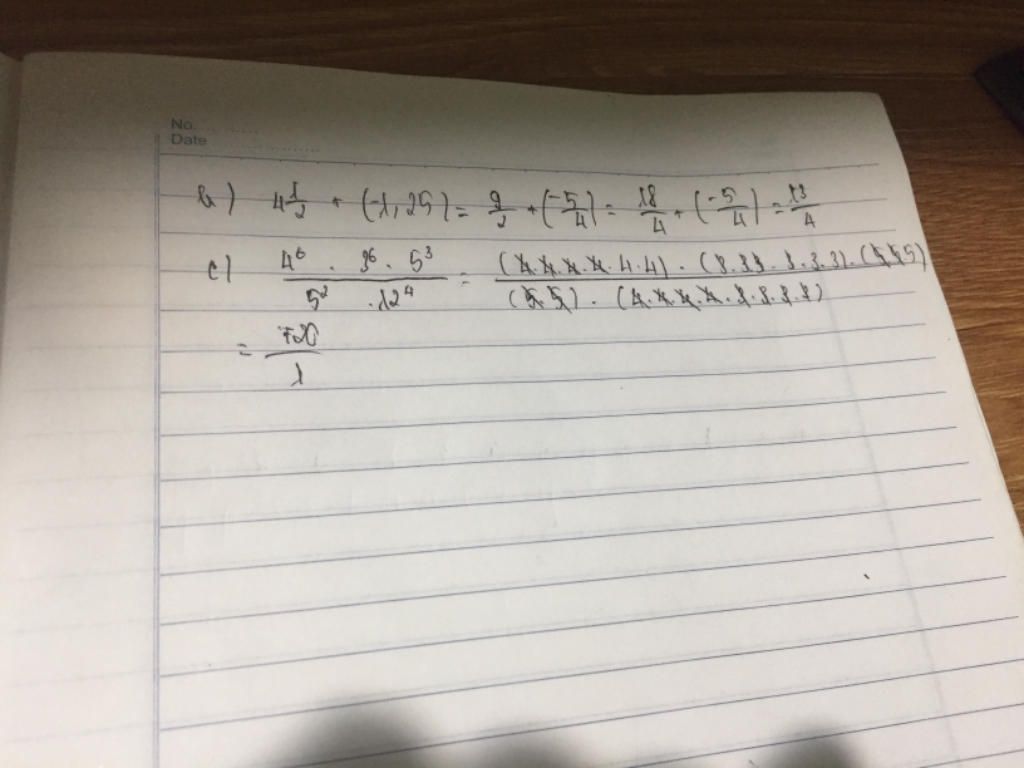 No. ............
Date ..................
b) 4 1/2 + (-1,25) = 9/2 + (-5/4) = 18/4 + (-5/4) = 13/4
c) (4^6 . 3^6 . 5^3)/(5^2 . 12^4) = ((4.4.4.4.4.4) . (3.3.3.3.3.3) . (5.5.5))/((5.5) . (4.4.4.4.3.3.3.3))
= 720/1